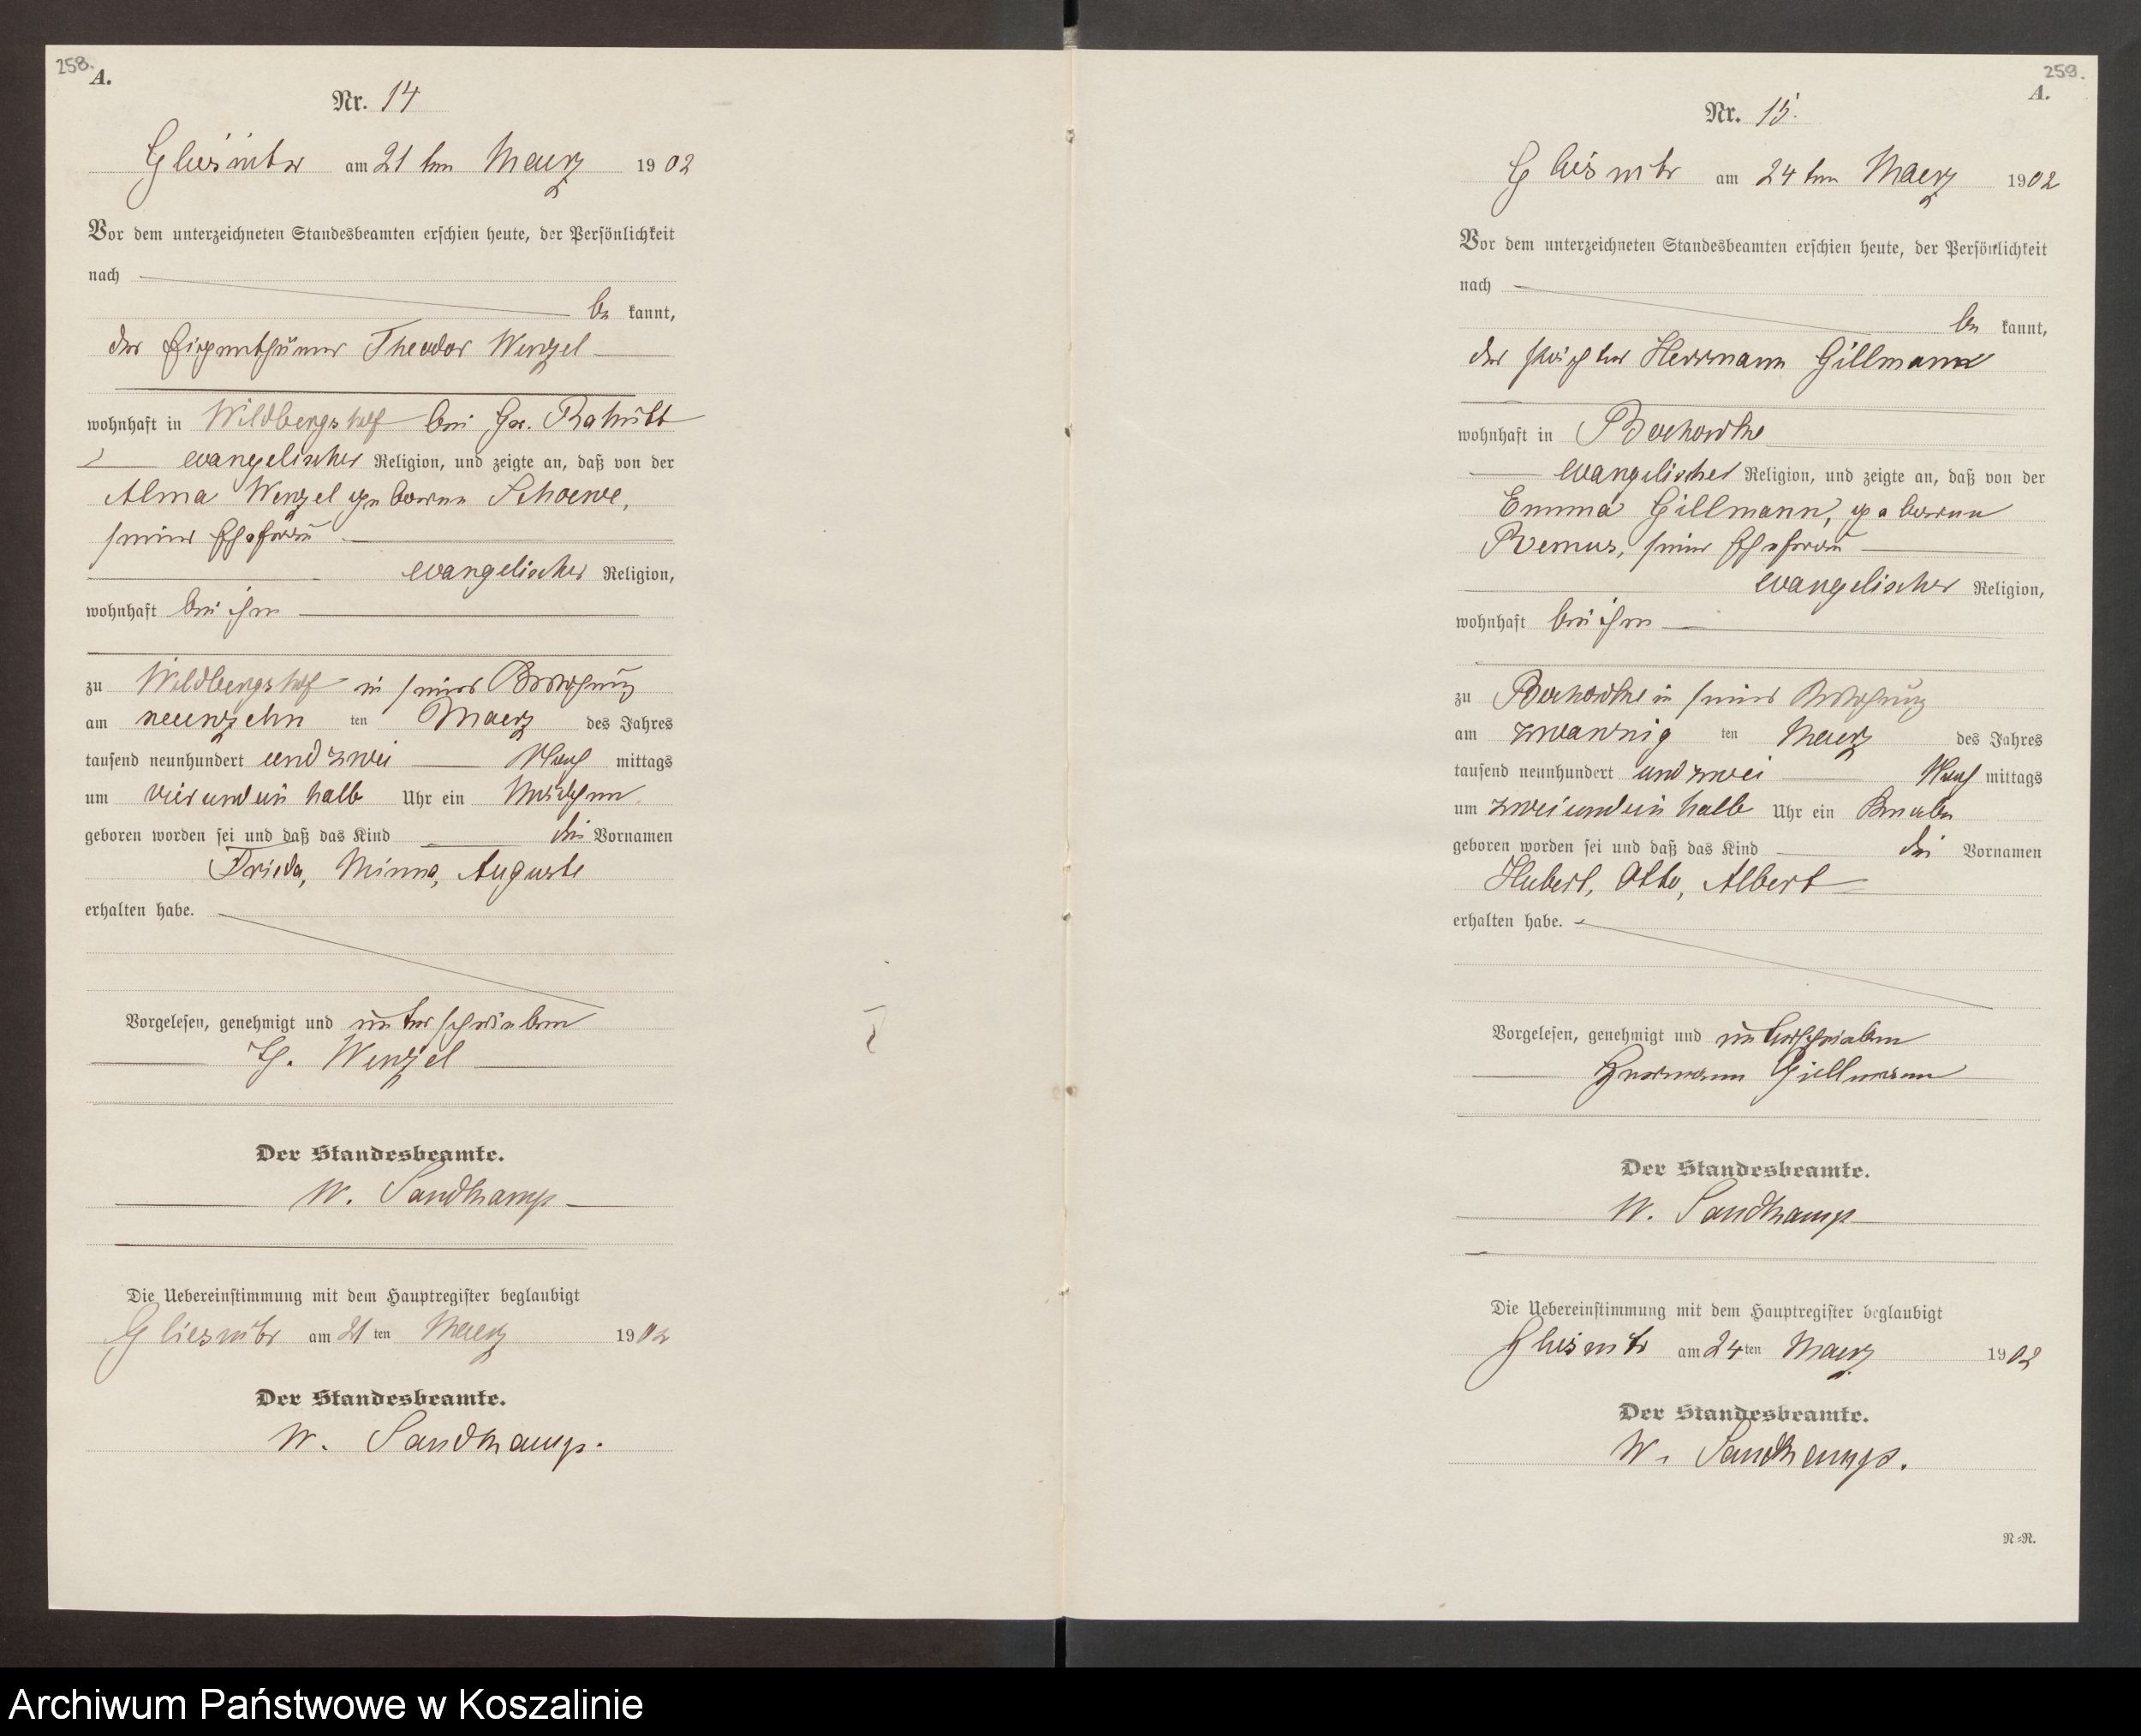 258.
A.
Nr. 14
Gliesnitz am 21 ten Maerz 1902
Vor dem unterzeichneten Standesbeamten erschien heute, der Persönlichkeit
nach
be kannt,
der Eigenthümer Theodor Wenzel
wohnhaft in Wildbergshof bei Gr.
evangelischer Religion, und zeigte an, daß von der
Alma Wenzel geborene Schoewe,
seiner Ehefrau
evangelischer Religion,
wohnhaft bei ihm
zu Wildbergshof in seiner Wohnung
am neunzehn ten Maerz des Jahres
tausend neunhundert und zwei Nach mittags
um vier und ein halb Uhr ein Mädchen
geboren worden sei und daß das Kind die Vornamen
Frieda, Minna, Auguste
erhalten habe.
Vorgelesen, genehmigt und unterschrieben
Th. Wenzel
Der Standesbeamte.
W. Sandkamp
Die Uebereinstimmung mit dem Hauptregister beglaubigt
Gliesnitz am 21 ten Maerz 1902
Der Standesbeamte.
W. Sandkamp.
259.
A.
Nr. 15.
Gliesnitz am 24 ten Maerz 1902
Vor dem unterzeichneten Standesbeamten erschien heute, der Persönlichkeit
nach
be kannt,
der Herrmann Gillmann
wohnhaft in
evangelischer Religion, und zeigte an, daß von der
Emma Gillmann, geborene
Remus, seiner Ehefrau
evangelischer Religion,
wohnhaft bei ihm
zu in seiner Wohnung
am zwanzig ten Maerz des Jahres
tausend neunhundert und zwei Nach mittags
um zwei und ein halb Uhr ein Knabe
geboren worden sei und daß das Kind die Vornamen
Hubert, Otto, Albert
erhalten habe.
Vorgelesen, genehmigt und unterschrieben
Herrmann Gillmann
Der Standesbeamte.
W. Sandkamp
Die Uebereinstimmung mit dem Hauptregister beglaubigt
Gliesnitz am 24 ten Maerz 1902
Der Standesbeamte.
W. Sandkamp.
N=R.
Archiwum Państwowe w Koszalinie